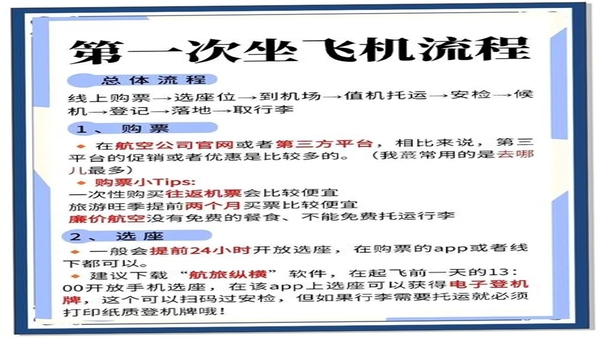 第一次坐飞机流程
总体流程
线上购票→选座位→到机场→值机托运→安检→候
机→登记→落地→取行李
1、购票
在航空公司官网或者第三方平台，相比来说，第三
平台的促销或者优惠是比较多的。（我蕞常用的是去哪
儿最多）
购票小Tips:
一次性购买往返机票会比较便宜
旅游旺季提前两个月买票比较便宜
廉价航空没有免费的餐食、不能免费托运行李
2、选座
一般会提前24小时开放选座，在购票的app或者线
下都可以。
建议下载“航旅纵横”软件，在起飞前一天的13：
00开放手机选座，在该app上选座可以获得电子登机
牌，这个可以扫码过安检，但如果行李需要托运就必须
打印纸质登机牌哦！